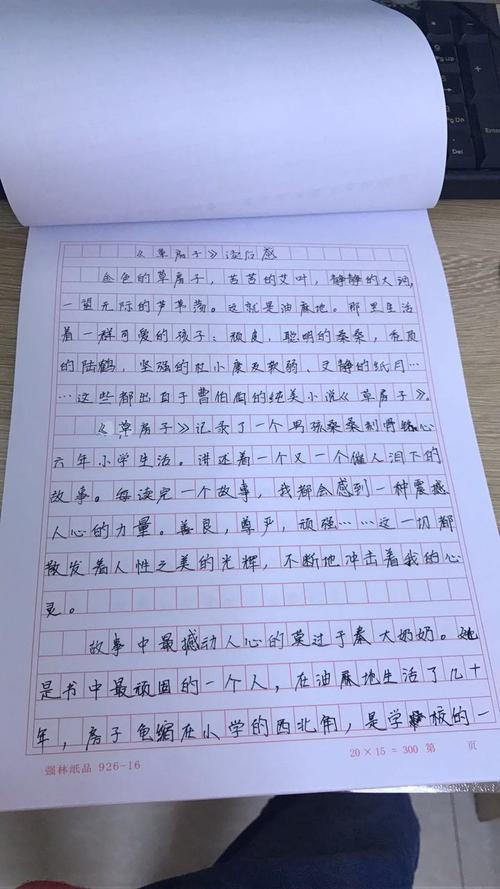 《草房子》读后感
金色的草房子,苦苦的艾叶,静静的大河,
一望无际的芦苇荡。这就是油麻地。那里生活
着一群可爱的孩子:顽皮,聪明的桑桑,秃顶
的陆鹤,坚强的杜小康及软弱、文静的纸月…
…这些都出自于曹文轩的纯美小说《草房子》。
《草房子》记录了一个男孩桑桑刻骨铭心
六年小学生活。讲述着一个又一个催人泪下的
故事。每读完一个故事,我都会感到一种震撼
人心的力量。善良,尊严,顽强……这一切都
散发着人性之美的光辉,不断地冲击着我的心
灵。
故事中最撼动人心的莫过于秦大奶奶。她
是书中最顽固的一个人,在油麻地生活了几十
年,房子龟缩在小学的西北角,是学校的一
强林纸品 926-16
20×15=300 第 页
Ins
Del